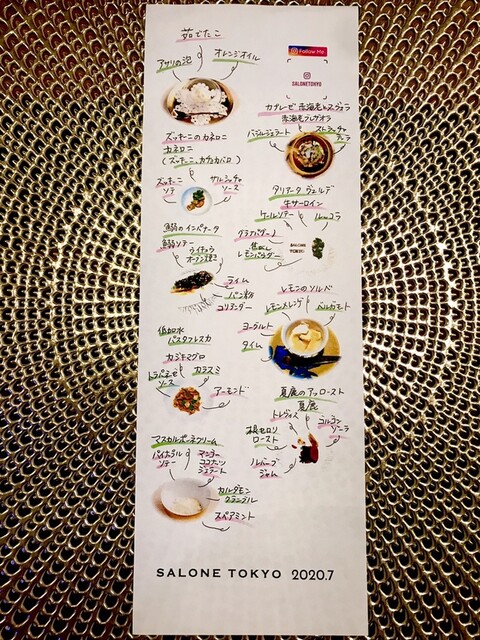 茹でたこ
アサリの泡
オレンジオイル
Follow Me
SALONETOKYO
ズッキーニのカネロニ
カネロニ
(ズッキーニ、カチョカバロ)
ズッキーニ
ソテー
サルシッチャ
ソース
バジルジェラート
ストラッチャ
テッラ
タリアータ ヴェルデ
牛サーロイン
ケールソテー
ルッコラ
グラナパダーノ
焦がし
レモンパウダー
鰯のインパナータ
鰯ソテー
ライム
パン粉
コリアンダー
レモンのソルベ
レモンメレンゲ
ベルガモット
ヨーグルト
タイム
低加水
パスタフレスカ
カジキマグロ
トラパネーゼ
ソース
カラスミ
アーモンド
夏鹿のアッロースト
夏鹿
トレヴィス
ゴルゴン
ゾーラ
根セロリ
ロースト
ルバーブ
ジャム
マスカルポーネクリーム
パイナップル
ソテー
マンゴー
ココナッツ
ジェラート
カルダモン
クランブル
スペアミント
SALONE TOKYO 2020.7